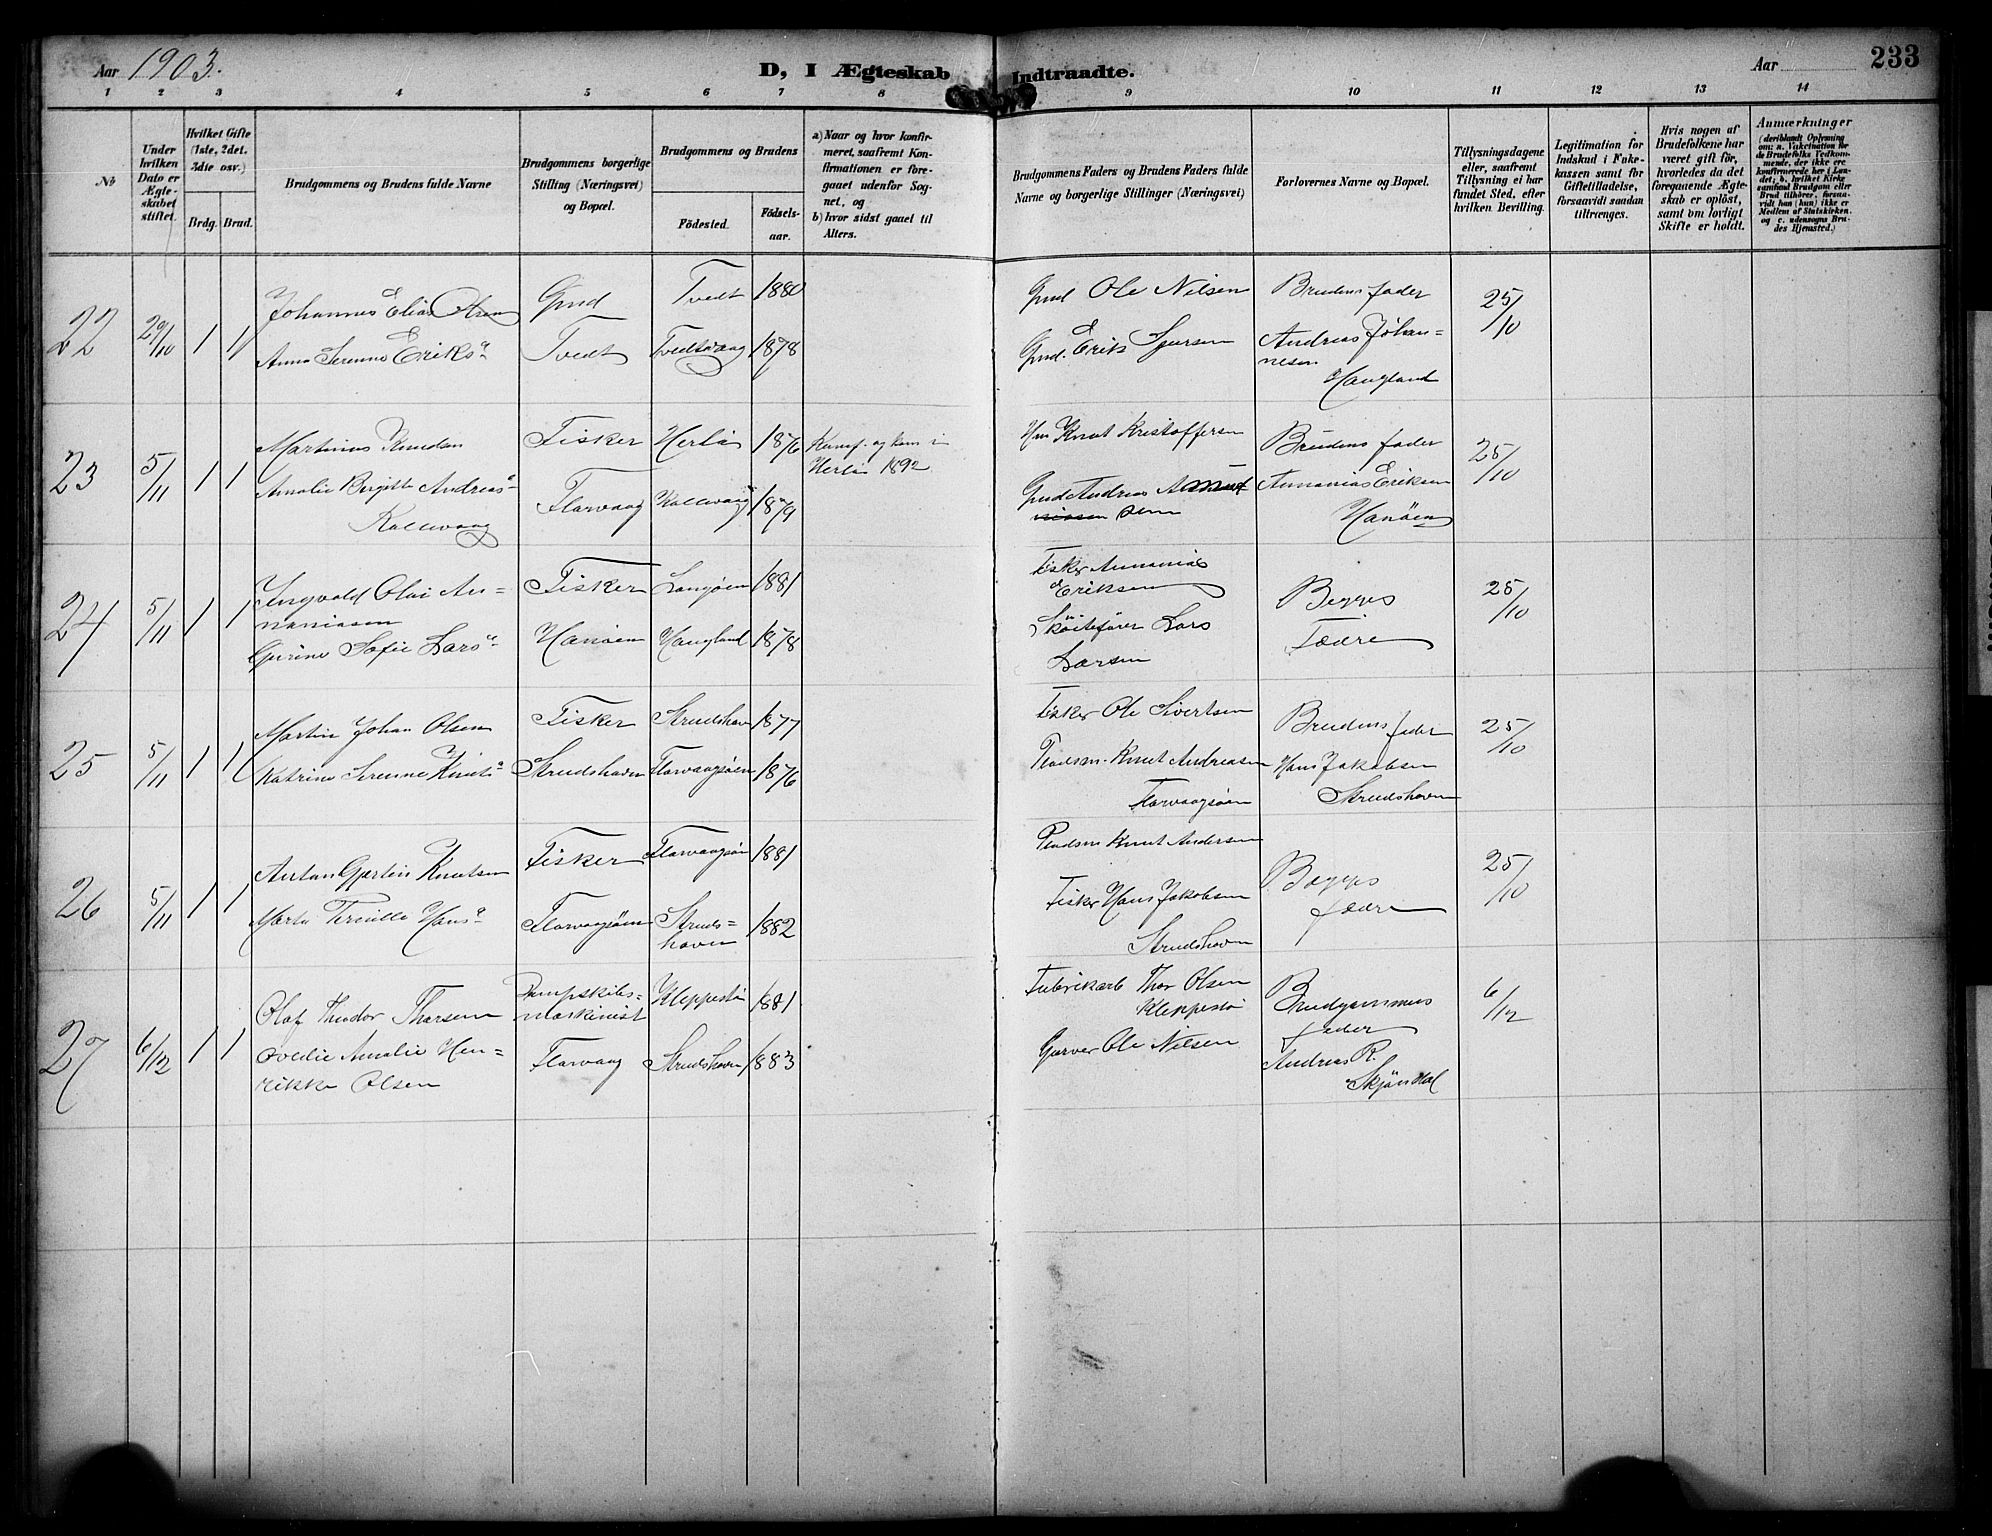 Aar 1903.
D, I Ægteskab Indtraadte.
Aar
233
1 2 3 4 5 6 7 8 9 10 11 12 13 14
No
Under hvilken Dato er Ægteskabet stiftet.
Hvilket Gifte (1ste, 2det. 3die osv.)
Brdg. Brud.
Brudgommens og Brudens fulde Navne
Brudgommens borgerlige Stilling (Næringsvei) og Bopæl.
Brudgommens og Brudens
Fødested.
Fødselsaar.
a) Naar og hvor konfirmeret, saafremt Konfirmationen er foregaaet udenfor Sognet, og
b) hvor sidst gaaet til Alters.
Brudgommens Faders og Brudens Faders fulde Navne og borgerlige Stillinger (Næringsvei)
Forlovernes Navne og Bopæl.
Tillysningsdagene eller, saafremt Tillysning ei har fundet Sted, efter hvilken Bevilling.
Legitimation for Indskud i Fakekassen samt for Giftetilladelse, forsaavidt saadan tiltrænges.
Hvis nogen af Brudefolkene har været gift før, hvorledes da det foregaaende Ægteskab er opløst, samt om lovligt Skifte er holdt.
Anmærkninger
(deriblandt Oplysning om: a. Vakcination for de Brudefolks Vedkommende, der ikke ere konfirmerede her i Landet; b. hvilket Kirkesamfund Brudgom eller Brud tilhører, forsaavidt han (hun) ikke er Medlem af Statskirken, og c. udensogns Brudes Hjemsted.)
22 29/10 1 1
Johannes Elias Olsen
Gmd Tvedt 1880
Anna Serenne Eriksd
Tvedt Tvedtvaag 1878
Gmd Ole Nilsen
Gmd. Erik Sjursen
Brudens fader
Andreas Johan=
nesen
Haugland
25/10
23 5/11 1 1
Martinus Knudsen
Fisker Herlø 1876
Konf. og kom i
Herlø 1892
Amalie Birgitte Andreasd
Kollevaag
Florvaag Kollevaag 1879
Hm Knut Kristoffersen
Gmd Andreas
Brudens fader
Annanias Eriksen
Hanøen
25/10
24 5/11 1 1
Ingvald Olai An=
naniasen
Fisker Langøen 1881
Gurine Sofie Larsd
Hanøen Haugland 1878
Fisker Annanias
Eriksen
Skøitefører Lars
Larsen
Begges
Fædre
25/10
25 5/11 1 1
Martin Johan Olsen
Fisker Strudshavn 1877
Katrine Serenne Knutsd
Strudshavn Florvaagøen 1876
Fisker Ole Sivertsen
Pladsm. Knut Andreasen
Florvaagøen
Brudens fader
Hans Jakobsen
Strudshavn
25/10
26 5/11 1 1
Anton Gjertin Knutsen
Fisker Florvaagøen 1881
Marta Hansd
Florvaagøen Struds=
havn 1882
Pladsm Knut Andersen
Fisker Hans Jakobsen
Strudshavn
Begges
fædre
25/10
27 6/12 1 1
Olaf Theodor Thorsen
Dampskibs=
maskinist
Kleppestø 1881
Ovedie Amalie Hen=
rikke Olsen
Florvaag Strudshavn 1883
Fabrikarb Thor Olsen
Kleppestø
Garver Ole Nilsen
Brudgommens
fader
Andreas R.
Skjøndal
6/12